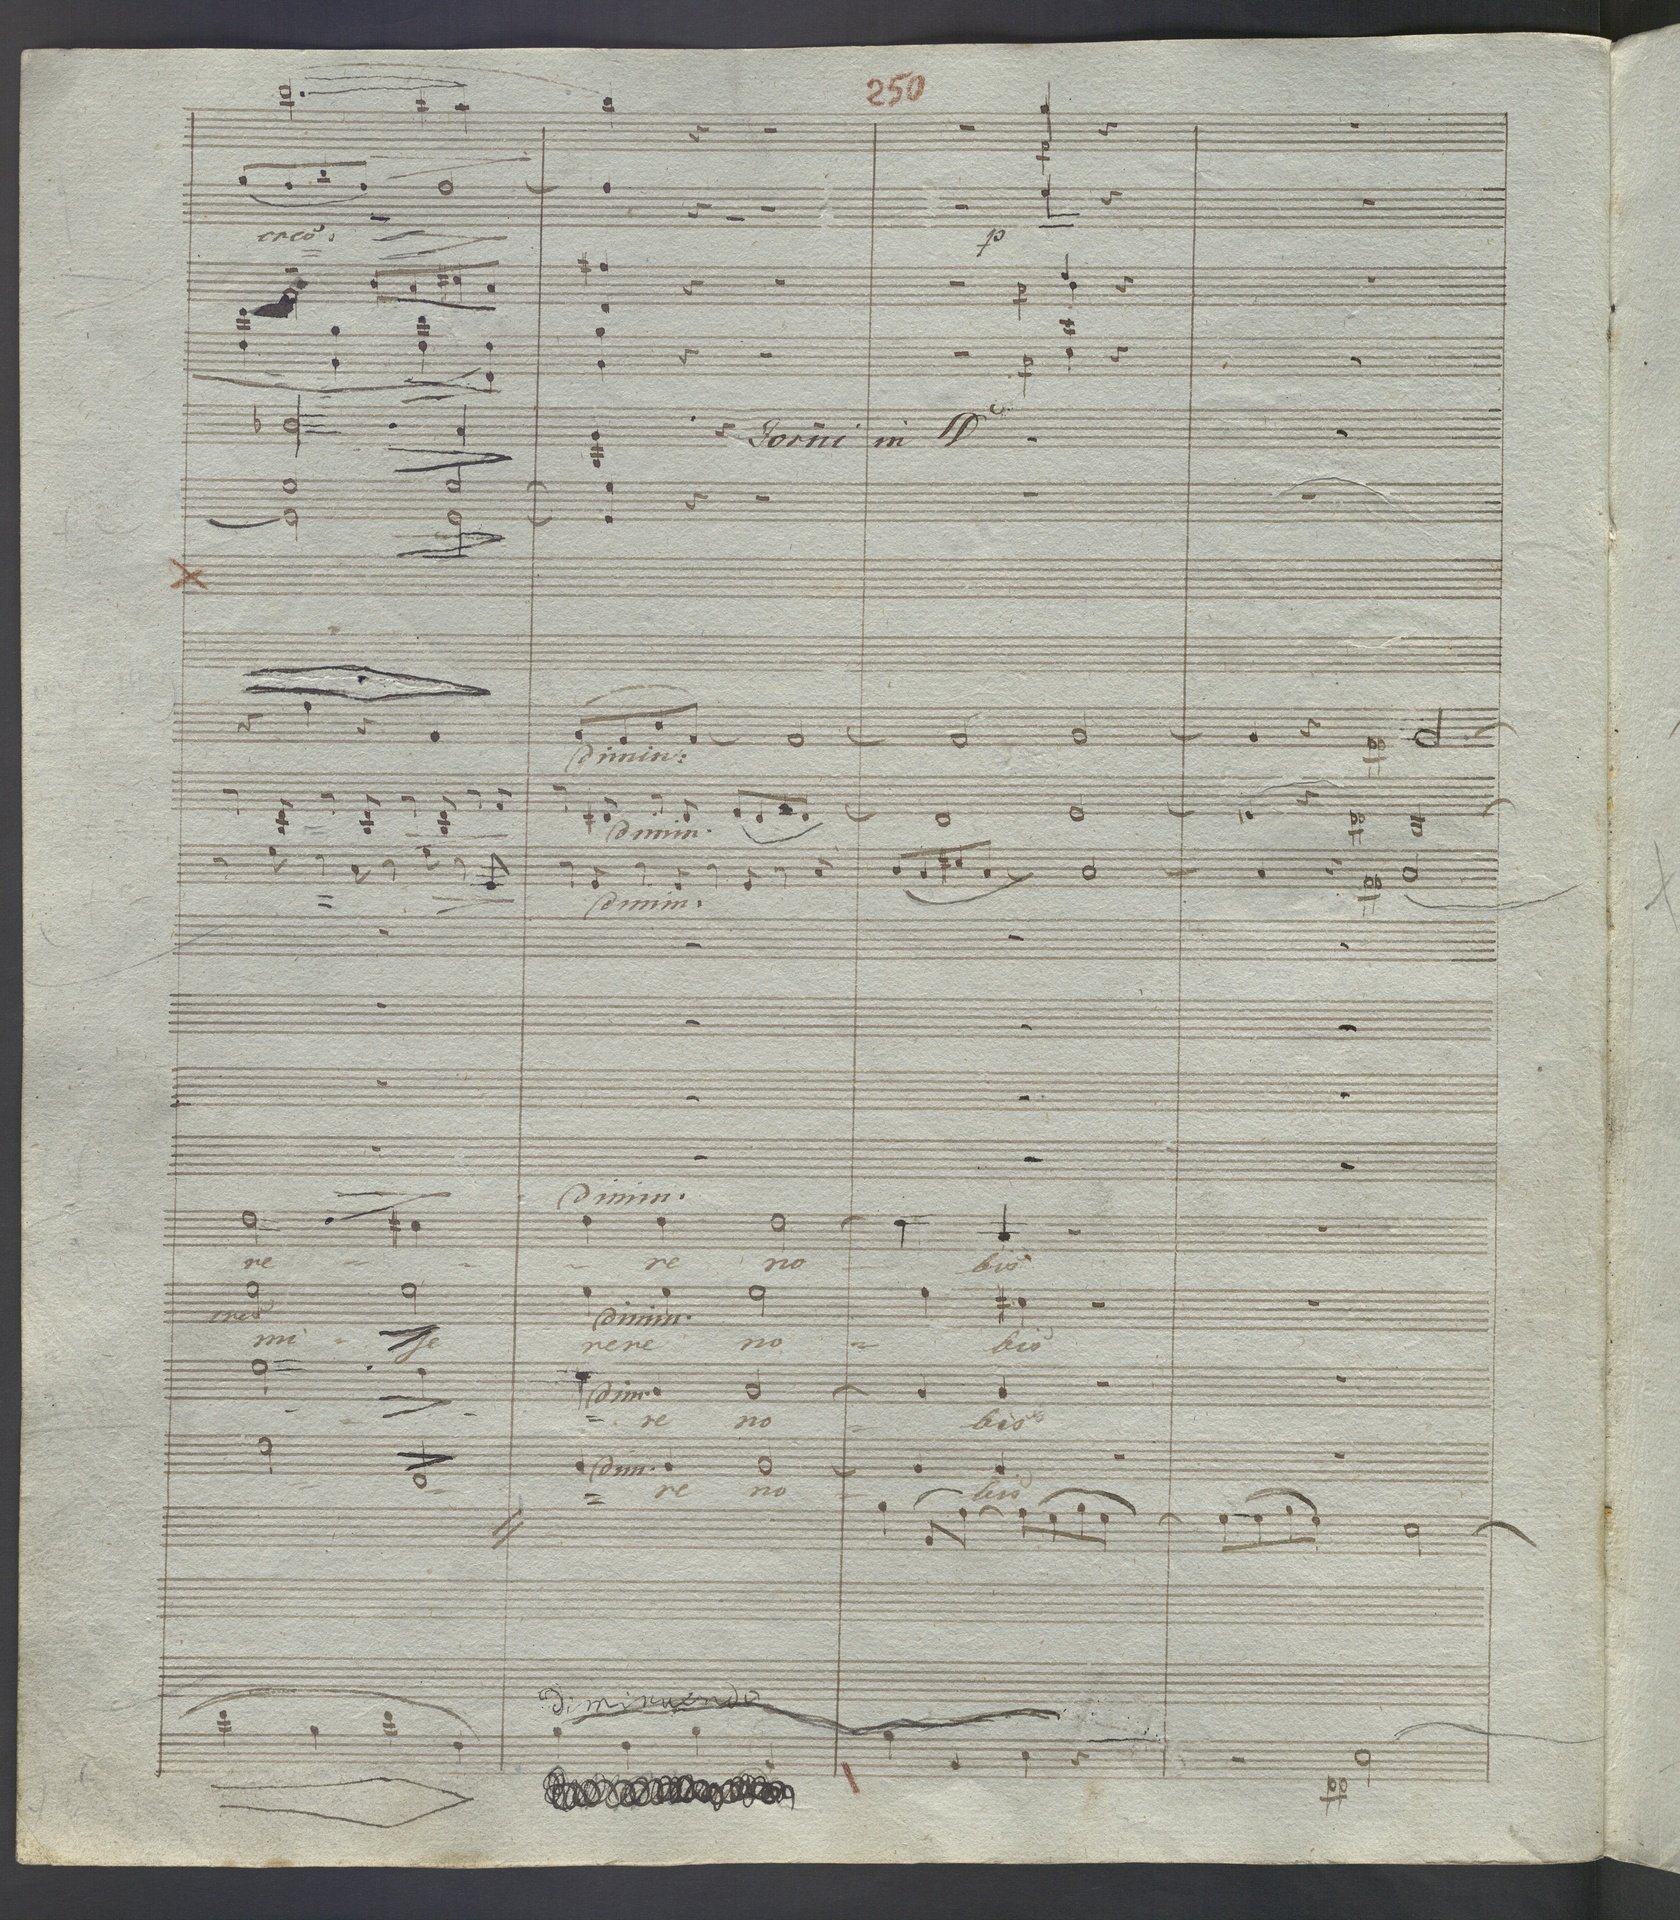 250
cresc:
p
Corni in D
Dimin:
Dimin.
Dimin.
Dimin.
re - - - re no - bis
cresc Dimin.
mi - se rere no - bis
Dim.
- - - = re no - bis
Dim.
- - = re no - bis
Diminuendo
pp